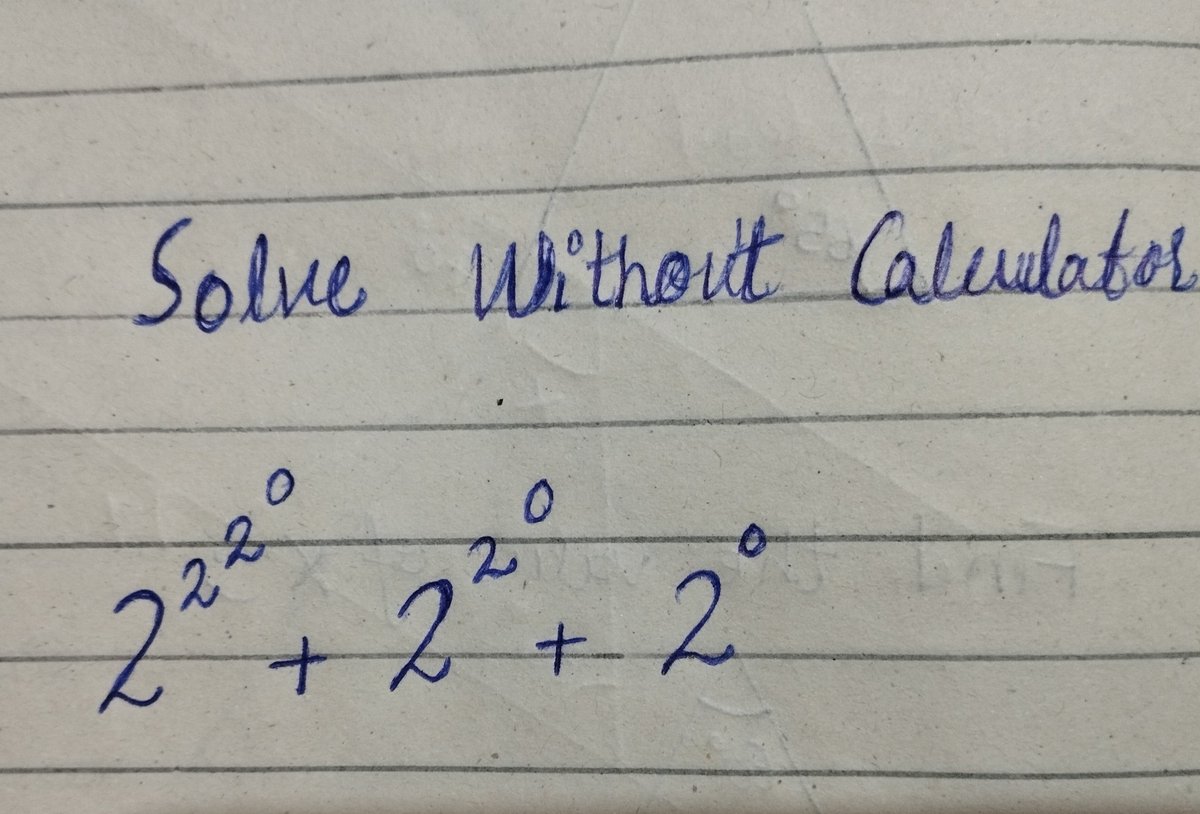 Solve Without Calculator
2^{2^{2^{0}}} + 2^{2^{0}} + 2^{0}